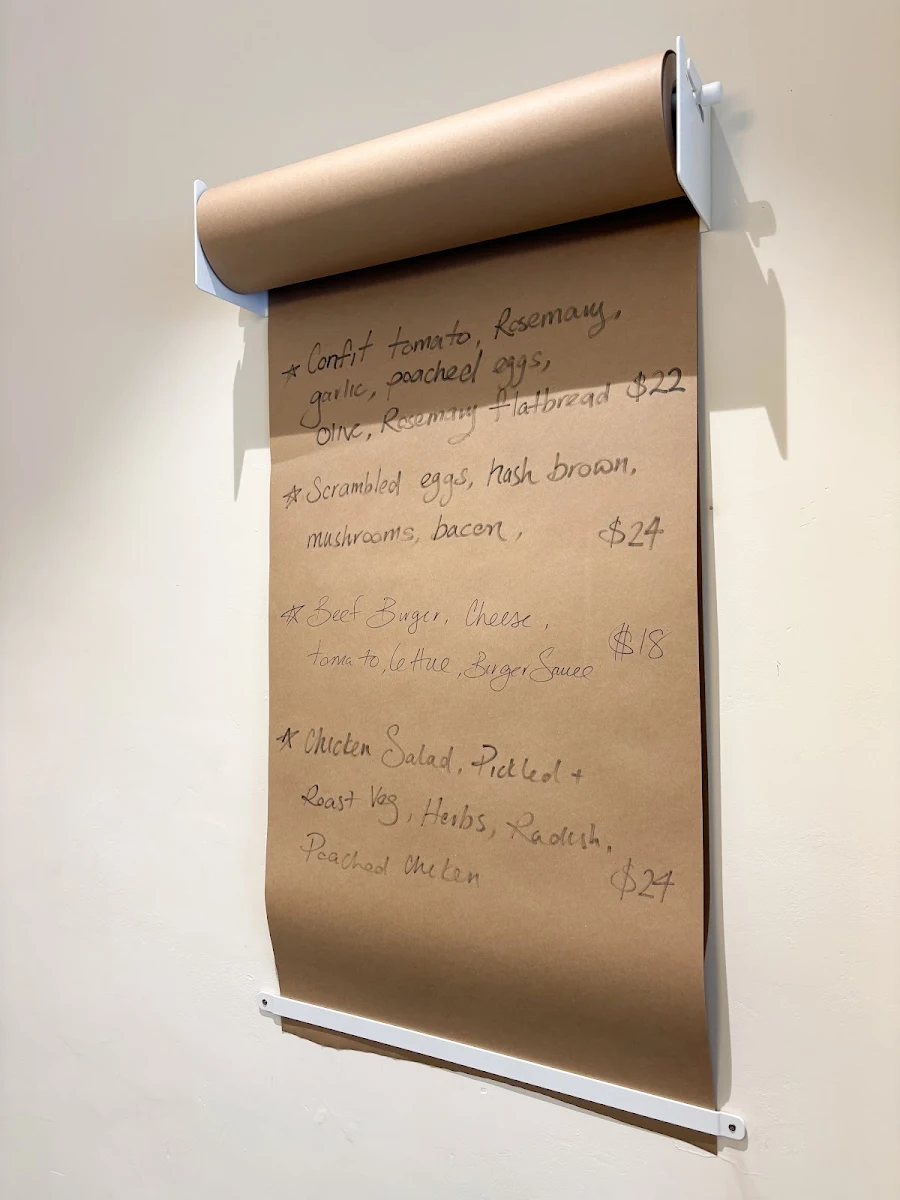 ☆ Confit tomato, Rosemary,
garlic, poached eggs,
Olive, Rosemary flatbread $22
☆ Scrambled eggs, hash brown,
mushrooms, bacon, $24
☆ Beef Burger, Cheese,
tomato, lettue, Burger Sauce $18
☆ Chicken Salad, Pickled +
Roast Veg, Herbs, Radish,
Poached chicken $24